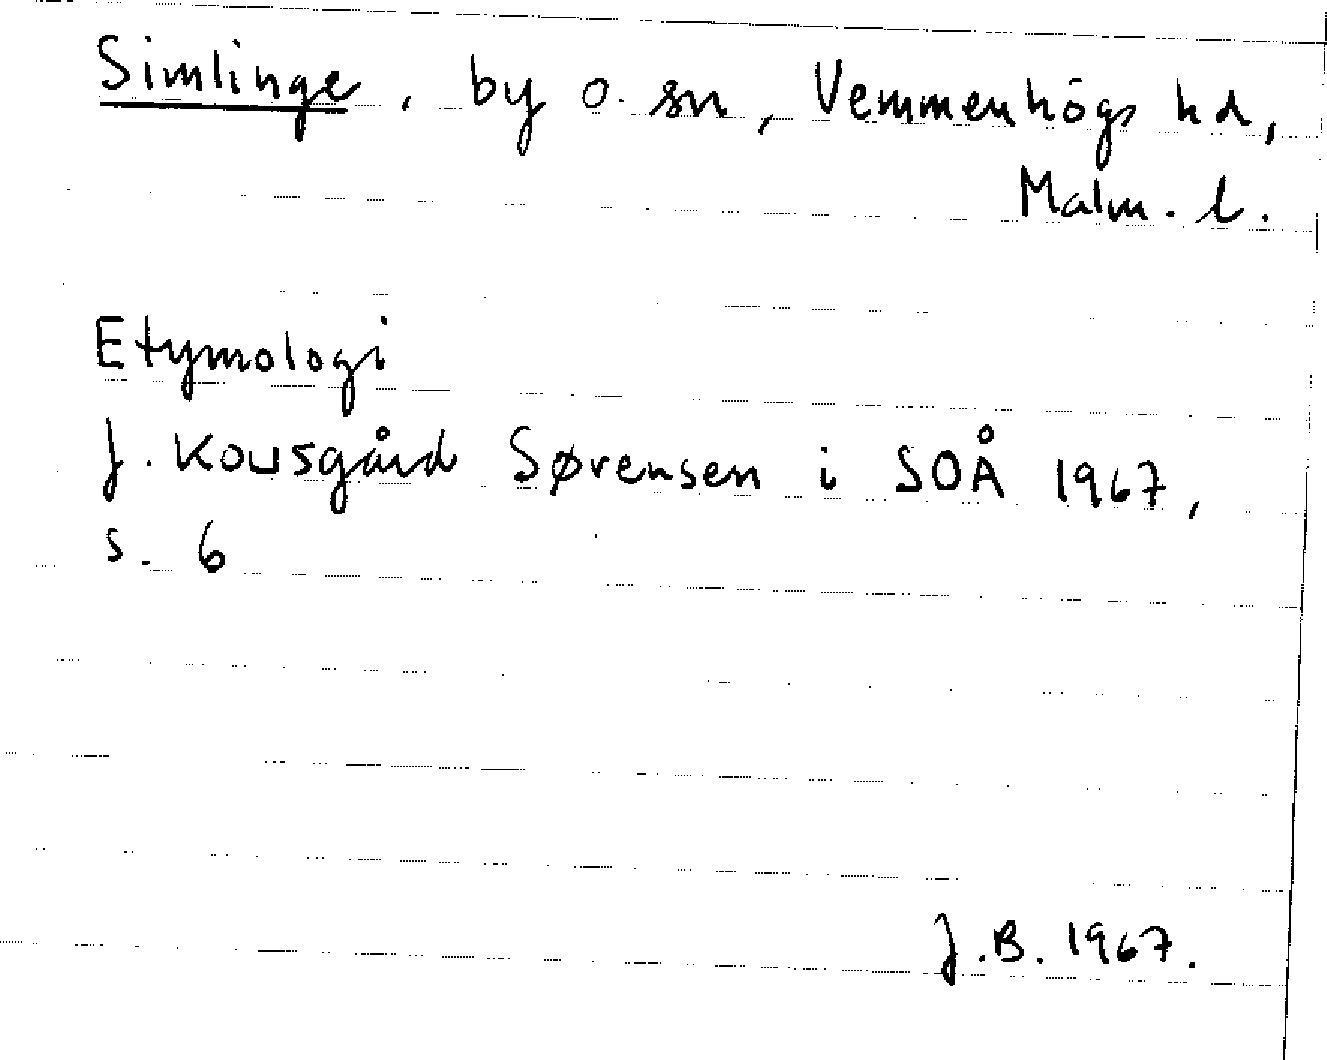 Simlinge, by o. sn, Vemmenhögs hd,
Malm. l.
Etymologi
J. Kousgård Sørensen i SOÅ 1967,
s. 6
J.B. 1967.